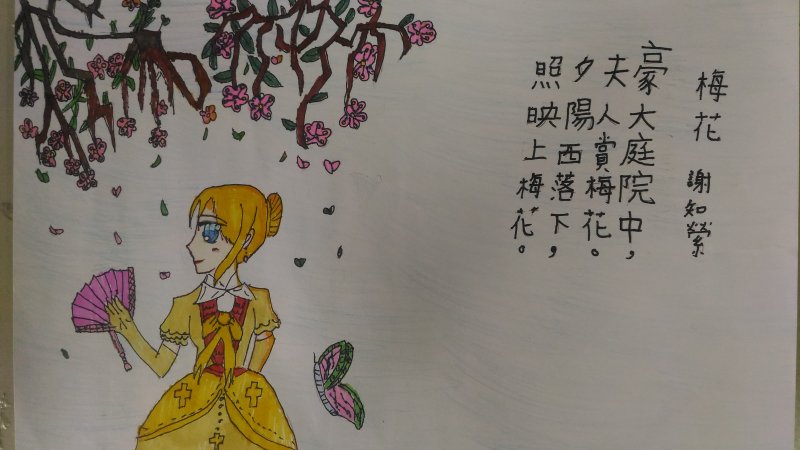 梅花
謝知縈
豪大庭院中，
夫人賞梅花。
夕陽西落下，
照映上梅花。